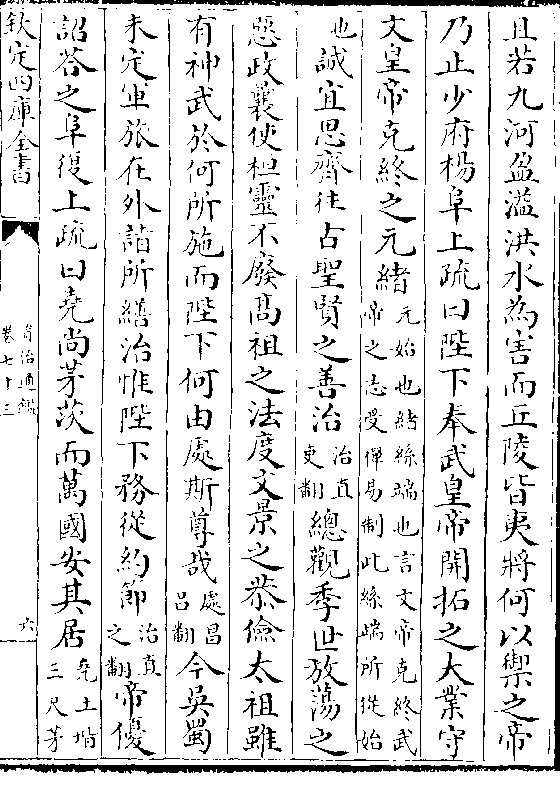 且若九河盈溢洪水為害而丘陵皆夷將何以禦之帝
乃止少府楊阜上疏曰陛下奉武皇帝開拓之大業守
文皇帝克終之元緒元始也緒絲端也言文帝克終武帝之志受禪易制此絲端所從始
也誠宜思齊往古聖賢之善治治直吏翻總觀季世放蕩之
惡政曩使桓靈不廢髙祖之法度文景之恭儉太祖雖
有神武於何所施而陛下何由處斯尊哉處昌吕翻今吳蜀
未定軍旅在外諸所繕治惟陛下務從約節治直之翻帝優
詔荅之阜復上疏曰堯尚茅茨而萬國安其居堯土堦三尺茅
欽定四庫全書
資治通鑑
卷七十三
六